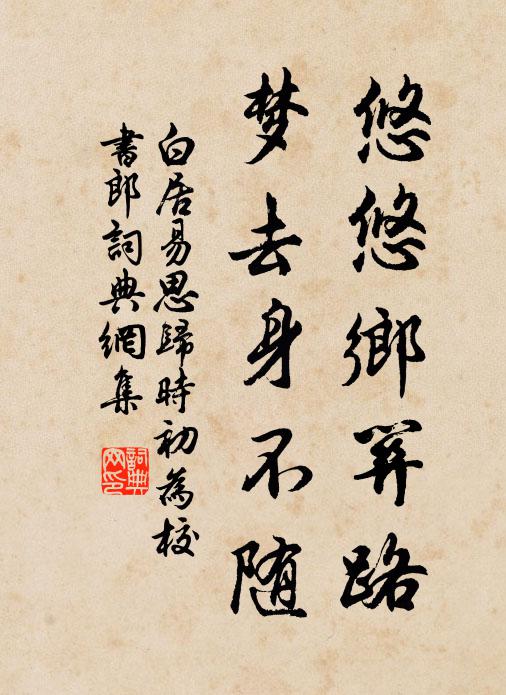 悠悠鄉關路
梦去身不随
白居易思歸時初為校
書郎詞典網集
詞典
网印